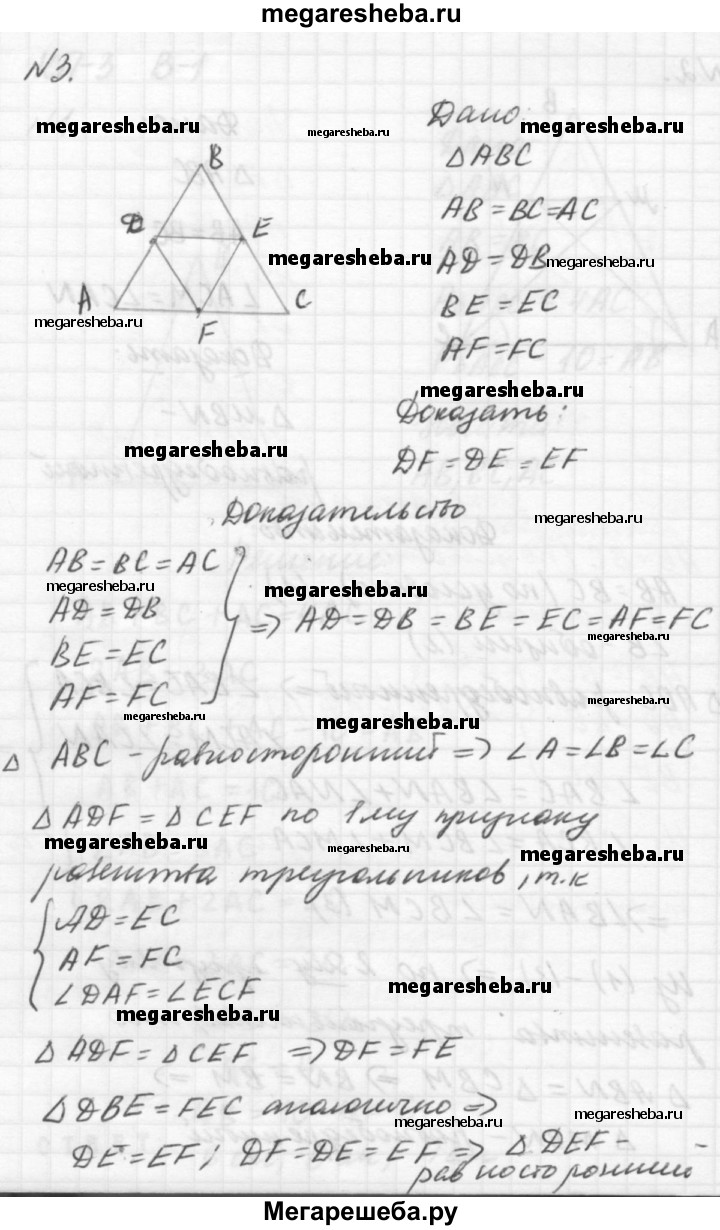 megaresheba.ru
N3.
megaresheba.ru megaresheba.ru megaresheba.ru
Дано:
B
△ABC
D E
AB = BC = AC
megaresheba.ru megaresheba.ru
AD = DB
A C
BE = EC
megaresheba.ru
F
AF = FC
megaresheba.ru
Доказать:
megaresheba.ru
DF = DE = EF
Доказательство
megaresheba.ru
AB = BC = AC
megaresheba.ru megaresheba.ru
AD = DB => AD = DB = BE = EC = AF = FC
megaresheba.ru
BE = EC
AF = FC
megaresheba.ru megaresheba.ru megaresheba.ru
△ ABC - равносторонний => ∠A = ∠B = ∠C
△ADF = △CEF по 1му признаку
megaresheba.ru megaresheba.ru megaresheba.ru
равенства треугольников, т.к
AD = EC
AF = FC
∠DAF = ∠ECF
megaresheba.ru
megaresheba.ru
△ADF = △CEF => DF = FE
△DBE = FEC аналогично =>
megaresheba.ru megaresheba.ru
DE = EF; DF = DE = EF => △DEF -
равносторонний
Мегарешеба.ру